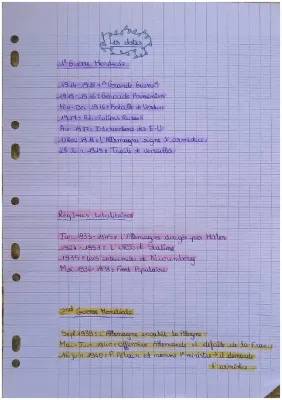 Les dates
1e Guerre Mondiale
1914-1918 : "Grande Guerre"
1915-1916 : Génocide Arménien
Fév-Déc 1916 : Bataille de Verdun
1917 : Révolution Russe
Avr 1917 : Intervention des E-U
11 Nov 1918 : l'Allemagne signe l'armistice
28 Juin 1919 : Traité de Versailles
Régimes totalitaires
Jan 1933-1945 : L'Allemagne dirigée par Hitler
1924-1953 : L'URSS de Staline
1935 : Lois antisémites de Nuremberg
Mai 1936-1938 : Front Populaire
2nd Guerre Mondiale
Sept 1939 : Allemagne envahit la Pologne
Mai-Juin 1940 : Offensive Allemande et défaite de la France
16 juin 1940 : P. Pétain est nommé 1er ministre → il demande
d'armistice